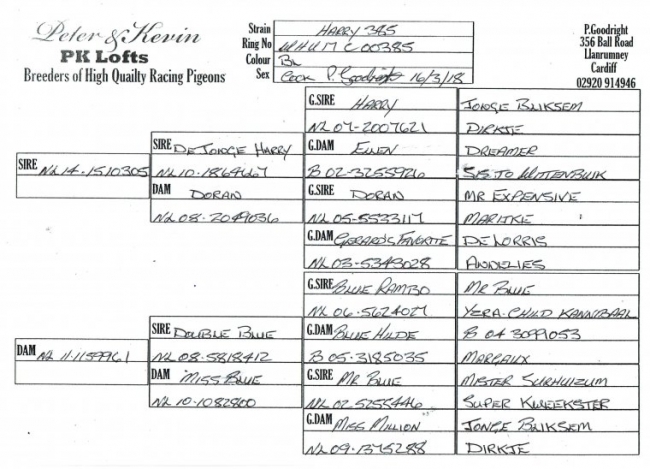 Peter & Kevin
PK Lofts
Breeders of High Quailty Racing Pigeons
Strain HARRY 385
Ring No WHUM C 00385
Colour BL
Sex COCK P. Goodright 16/3/18
P.Goodright
356 Ball Road
Llanrumney
Cardiff
02920 914946
SIRE NL 14-1510305
SIRE DE JONGE HARRY
NL 10-1864667
DAM DORAN
NL 08-2049036
G.SIRE HARRY
NL 07-2007621
G.DAM EUEN
B 02-3255926
G.SIRE DORAN
NL 05-5533117
G.DAM GERARD'S FAVORITE
NL 03-5349028
JONGE BLIKSEM
DIRKJE
DREAMER
SIS TO WITTENBUIK
MR EXPENSIVE
MARITKE
DE LORRIS
ANNELIES
DAM NL 11-1159961
SIRE DOUBLE BLUE
NL 08-5818412
DAM MISS BLUE
NL 10-1082800
G.SIRE BLUE RAMBO
NL 06-5624027
G.DAM BLUE HILDE
B 05-3185035
G.SIRE MR BLUE
NL 02-5255446
G.DAM MISS MILLION
NL 09-1375288
MR BLUE
YZRA-CHILD KANNIBAAL
B 04 3099053
MARGAUX
MISTER SURHUIZUM
SUPER KWEEKSTER
JONGE BLIKSEM
DIRKJE